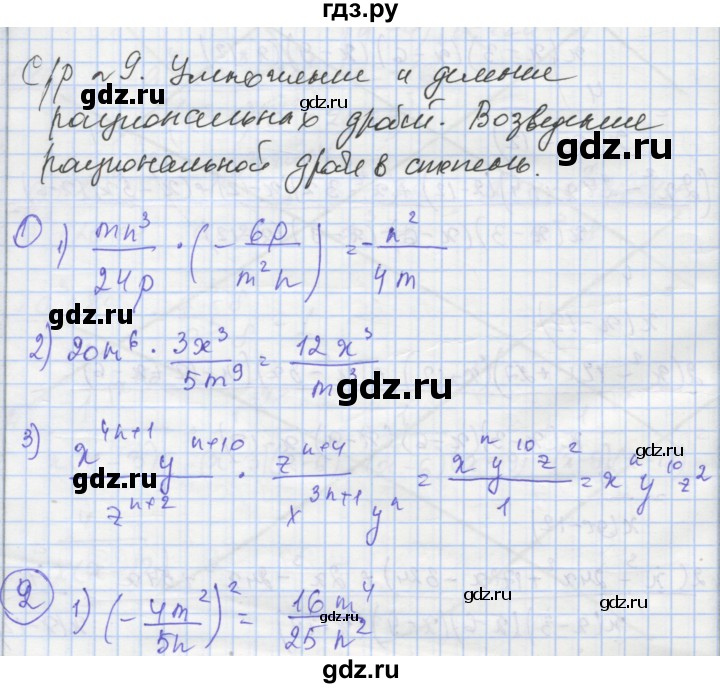 гдз.ру
С/р №9. Умножение и деление
рациональных дробей. Возведение
рациональной дроби в степень.
gdz.ru
1) 1) mn³/24p · (- 6p/m²n) = - n²/4m
gdz.ru
2) 20m⁶ · 3x³/5m⁹ = 12x³/m³
gdz.ru
3) x⁴ⁿ⁺¹ yⁿ⁺¹⁰/zⁿ⁺² · zⁿ⁺⁴/x³ⁿ⁺¹ yⁿ = xⁿ y¹⁰ z²/1 = xⁿ y¹⁰ z²
gdz.ru gdz.ru
2 1) (- 4m²/5n)² = 16m⁴/25n²
gdz.ru gdz.ru
gdz.ru